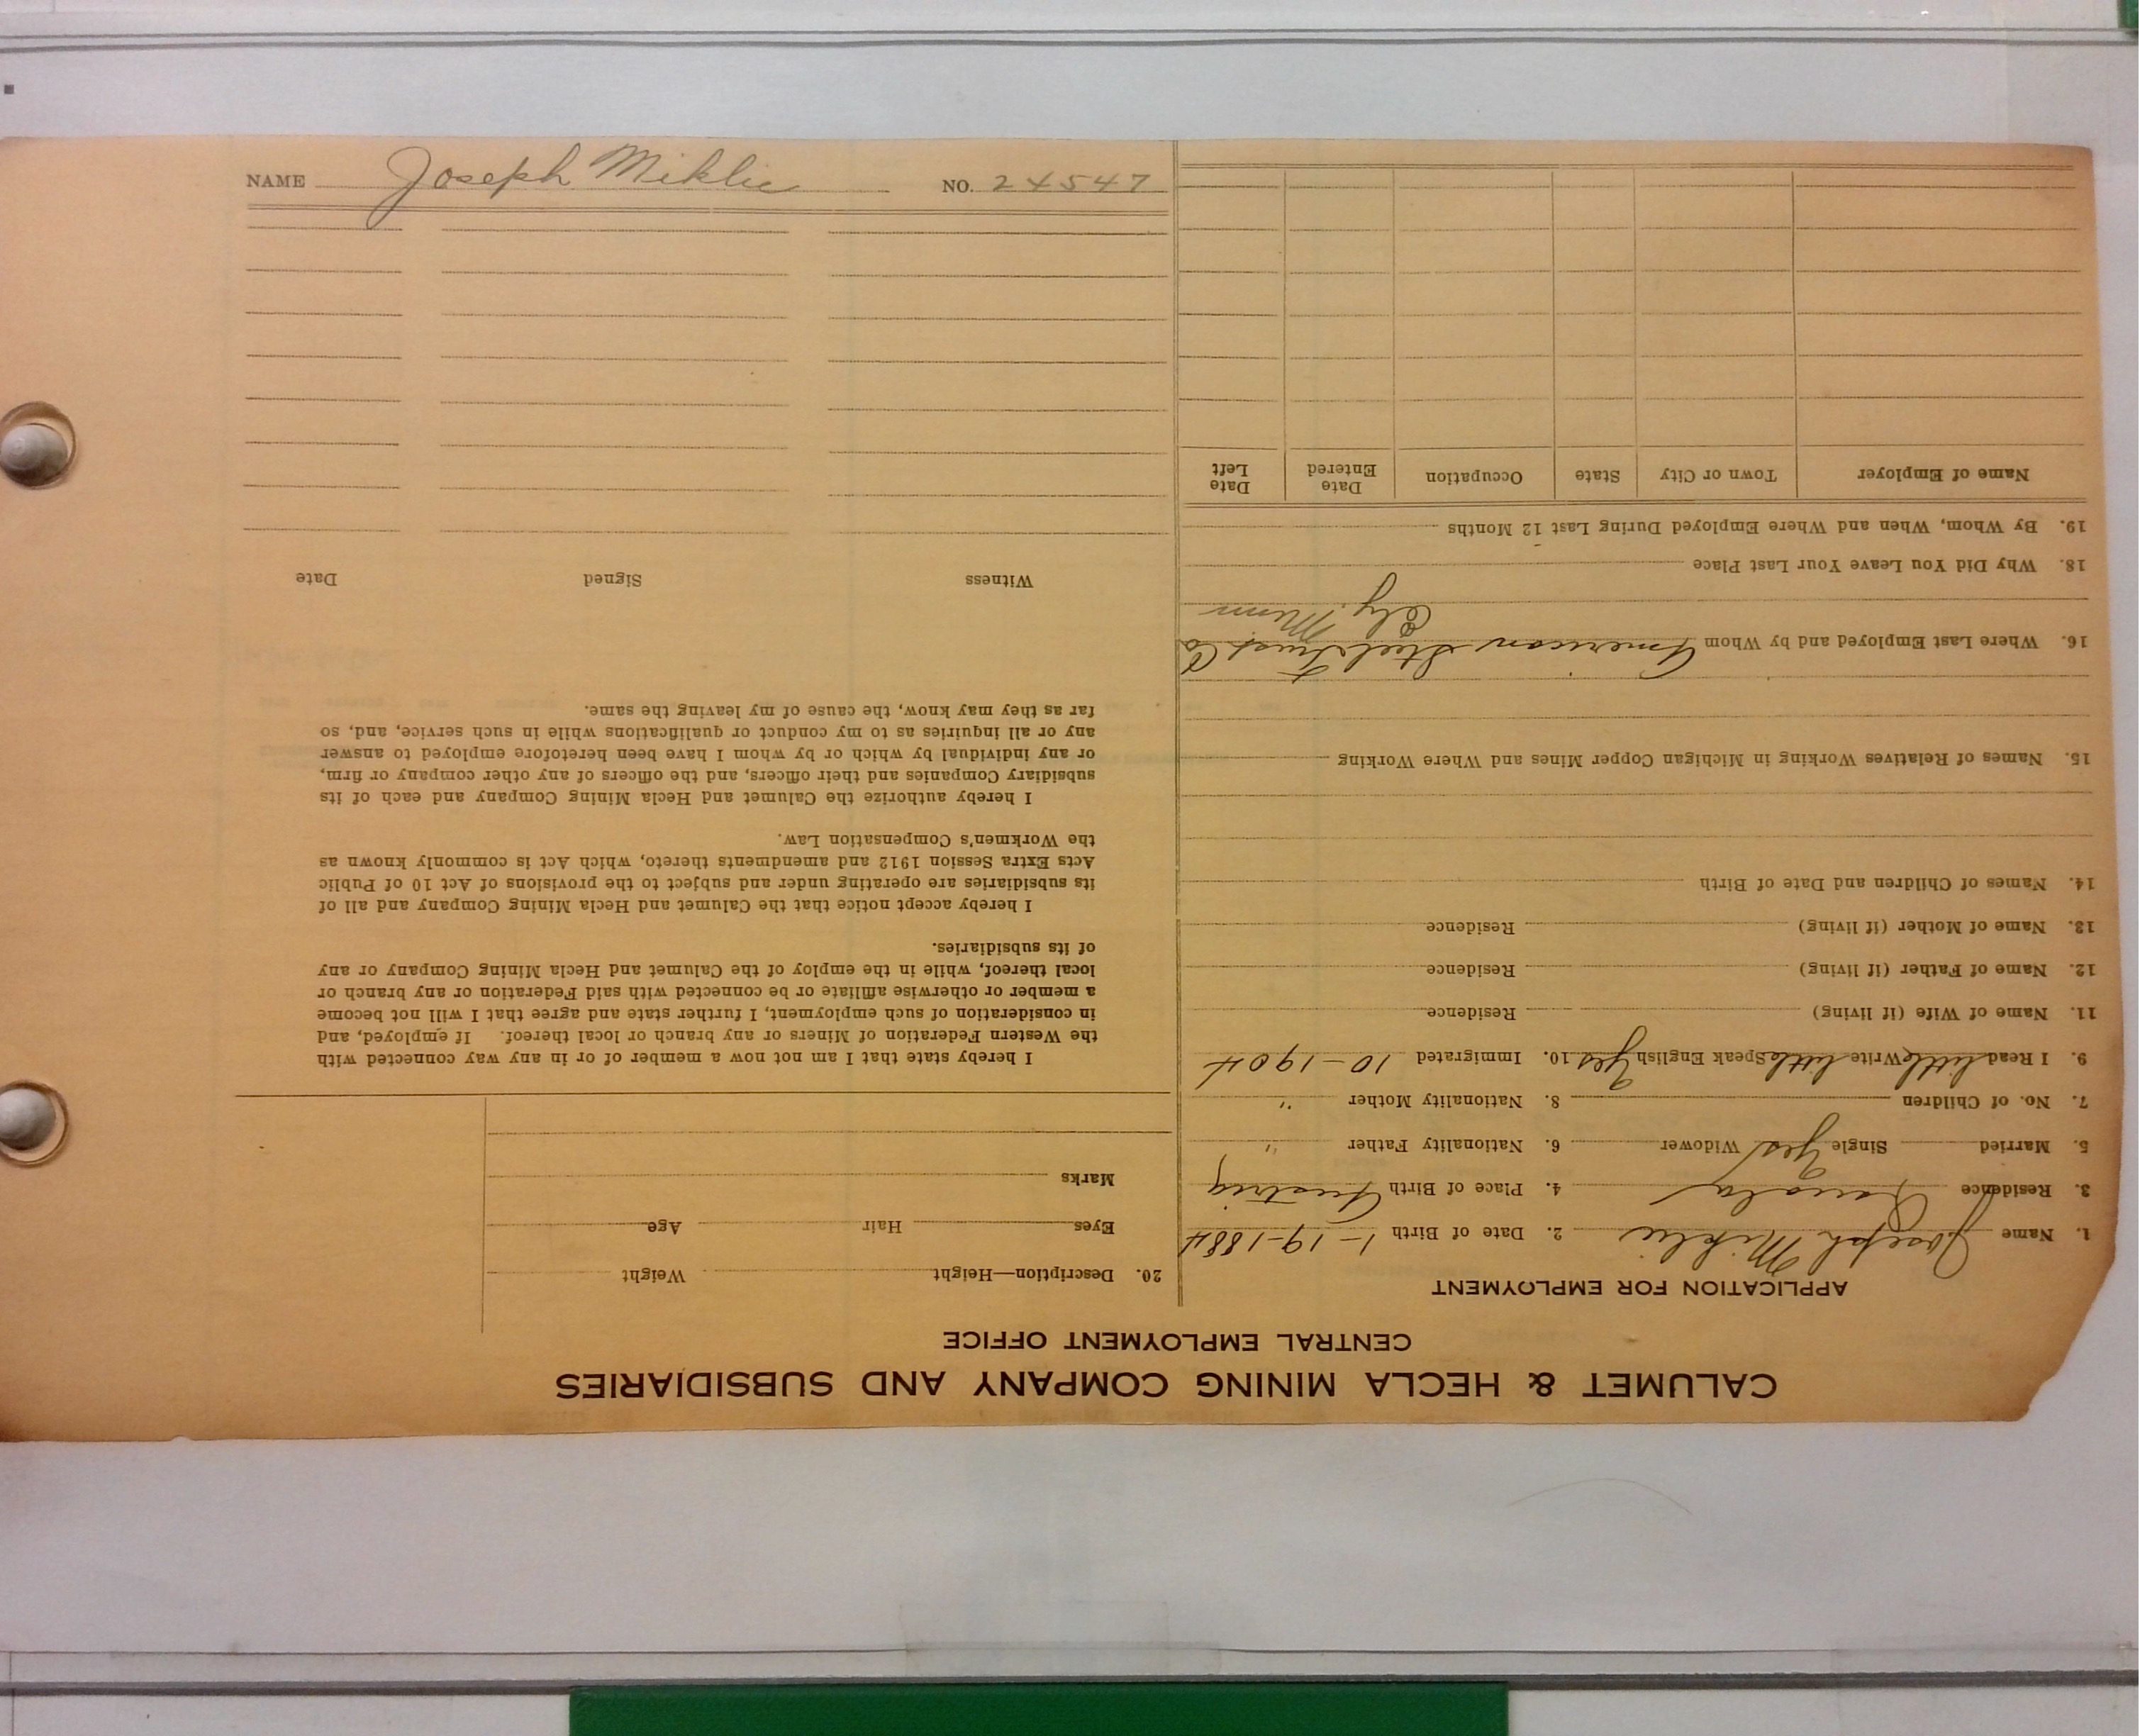 NAME Joseph Miklic NO. 24547
CALUMET & HECLA MINING COMPANY AND SUBSIDIARIES
CENTRAL EMPLOYMENT OFFICE
APPLICATION FOR EMPLOYMENT
1. Name Joseph Miklic 2. Date of Birth 1-19-1884
3. Residence 4. Place of Birth Austria
5. Married Single Yes Widower 6. Nationality Father "
7. No. of Children 8. Nationality Mother "
9. I Read little Write little Speak English Yes 10. Immigrated 10-1904
11. Name of Wife (if living) Residence
12. Name of Father (if living) Residence
13. Name of Mother (if living) Residence
14. Names of Children and Date of Birth
15. Names of Relatives Working in Michigan Copper Mines and Where Working
16. Where Last Employed and by Whom American Steel Trust Co
Ely. Minn
18. Why Did You Leave Your Last Place
19. By Whom, When and Where Employed During Last 12 Months
Name of Employer Town or City State Occupation Date Entered Date Left
20. Description—Height Weight
Eyes Hair Age
Marks
I hereby state that I am not now a member of or in any way connected with
the Western Federation of Miners or any branch or local thereof. If employed, and
in consideration of such employment, I further state and agree that I will not become
a member or otherwise affiliate or be connected with said Federation or any branch or
local thereof, while in the employ of the Calumet and Hecla Mining Company or any
of its subsidiaries.
I hereby accept notice that the Calumet and Hecla Mining Company and all of
its subsidiaries are operating under and subject to the provisions of Act 10 of Public
Acts Extra Session 1912 and amendments thereto, which Act is commonly known as
the Workmen's Compensation Law.
I hereby authorize the Calumet and Hecla Mining Company and each of its
subsidiary Companies and their officers, and the officers of any other company or firm,
or any individual by which or by whom I have been heretofore employed to answer
any or all inquiries as to my conduct or qualifications while in such service, and, so
far as they may know, the cause of my leaving the same.
Witness Signed Date